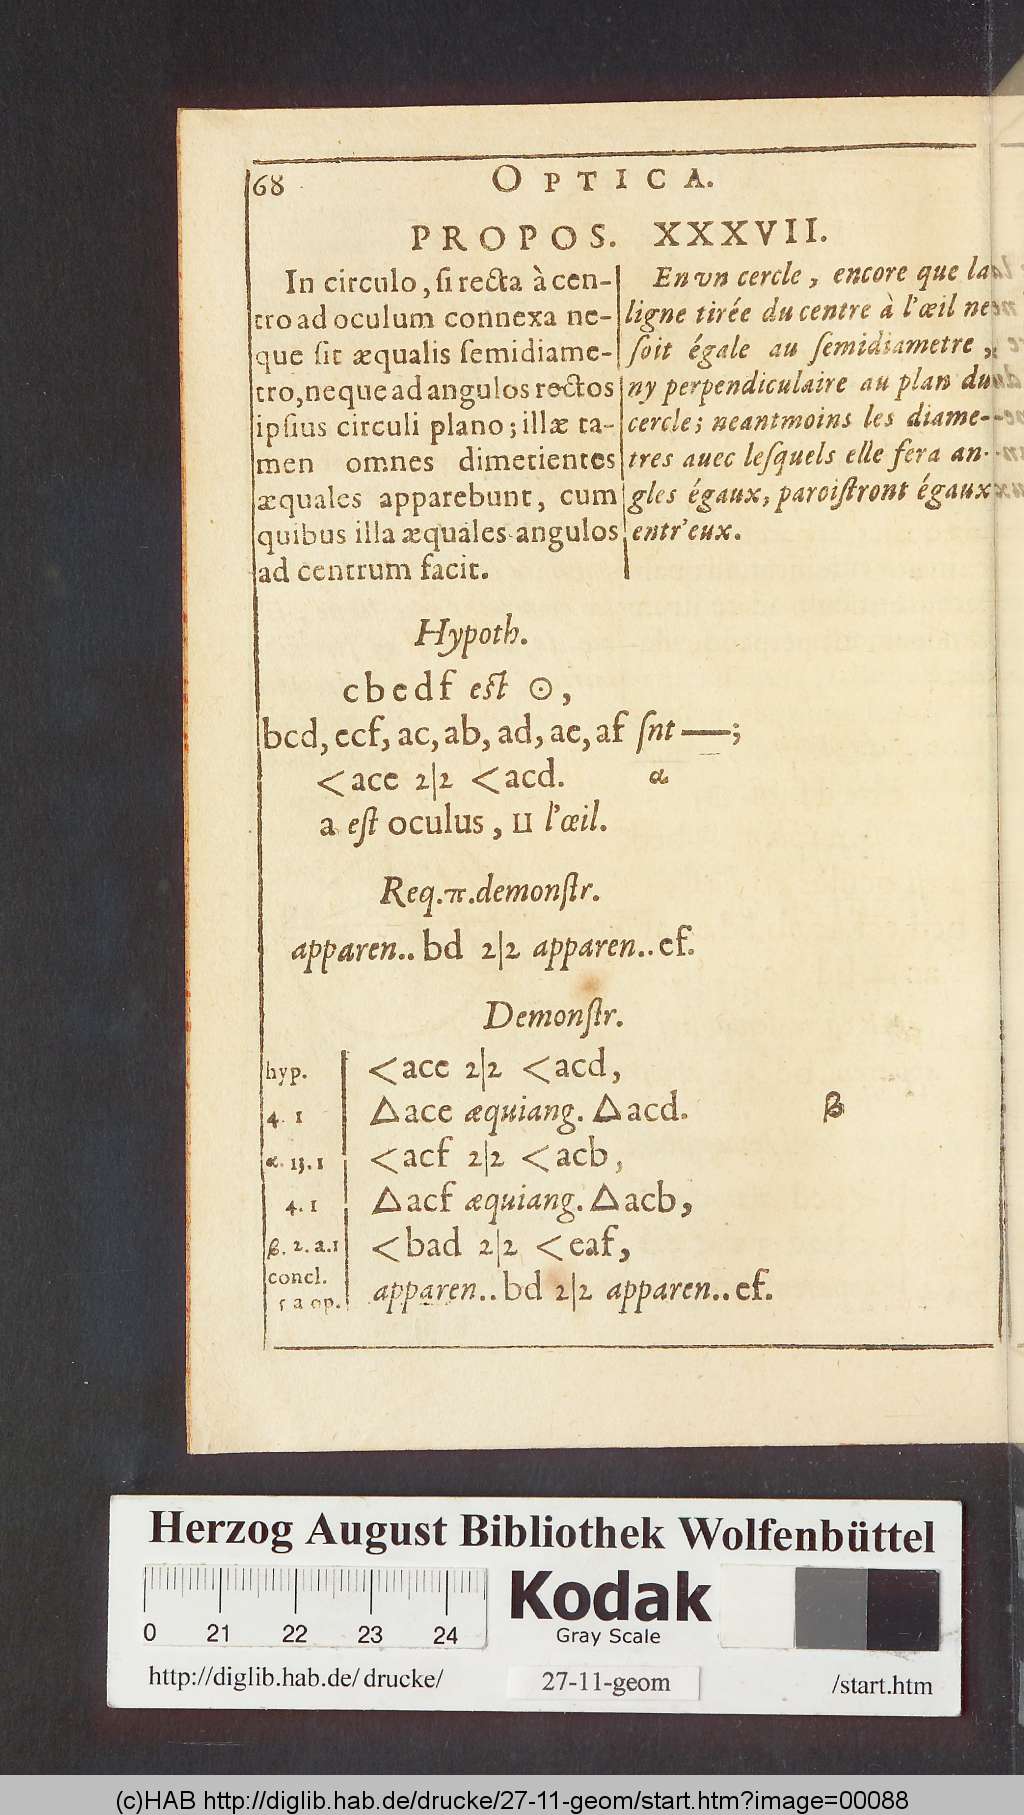 68
OPTICA.
PROPOS. XXXVII.
In circulo, si recta à cen-
tro ad oculum connexa ne-
que sit æqualis semidiame-
tro, neque ad angulos rectos
ipsius circuli plano; illæ ta-
men omnes dimetientes
æquales apparebunt, cum
quibus illa æquales angulos
ad centrum facit.
En vn cercle, encore que la
ligne tirée du centre à l'œil ne
soit égale au semidiametre,
ny perpendiculaire au plan du
cercle; neantmoins les diame-
tres auec lesquels elle fera an-
gles égaux, paroistront égaux
entr'eux.
Hypoth.
cbedf est ⊙,
bcd, ecf, ac, ab, ad, ae, af snt —;
<ace 2|2 <acd. α
a est oculus, ⊔ l'œil.
Req. π. demonstr.
apparen.. bd 2|2 apparen.. ef.
Demonstr.
hyp. <ace 2|2 <acd,
4. 1 △ace æquiang. △acd. β
α. 13. 1 <acf 2|2 <acb,
4. 1 △acf æquiang. △acb,
β. 2. a. 1 <bad 2|2 <eaf,
concl.
5 a op. apparen.. bd 2|2 apparen.. ef.
Herzog August Bibliothek Wolfenbüttel
0 21 22 23 24
Kodak
Gray Scale
http://diglib.hab.de/drucke/
27-11-geom
/start.htm
(c)HAB http://diglib.hab.de/drucke/27-11-geom/start.htm?image=00088